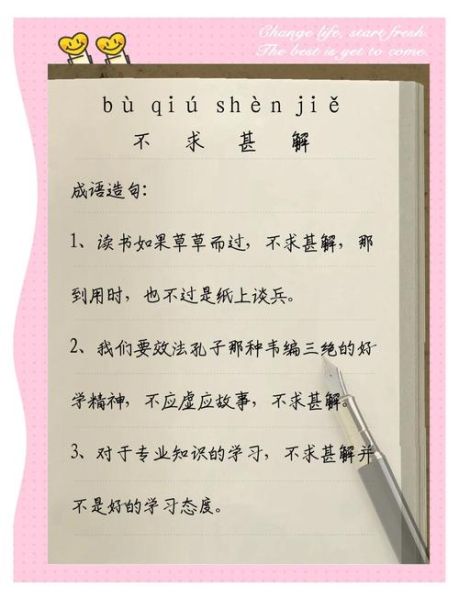 Change life, start fresh.
The best is yet to come.
bù qiú shèn jiě
不 求 甚 解
成语造句:
1、读书如果草草而过，不求甚解，那
到用时，也不过是纸上谈兵。
2、我们要效法孔子那种韦编三绝的好
学精神，不应虚应故事，不求甚解。
3、对于专业知识的学习，不求甚解并
不是好的学习态度。